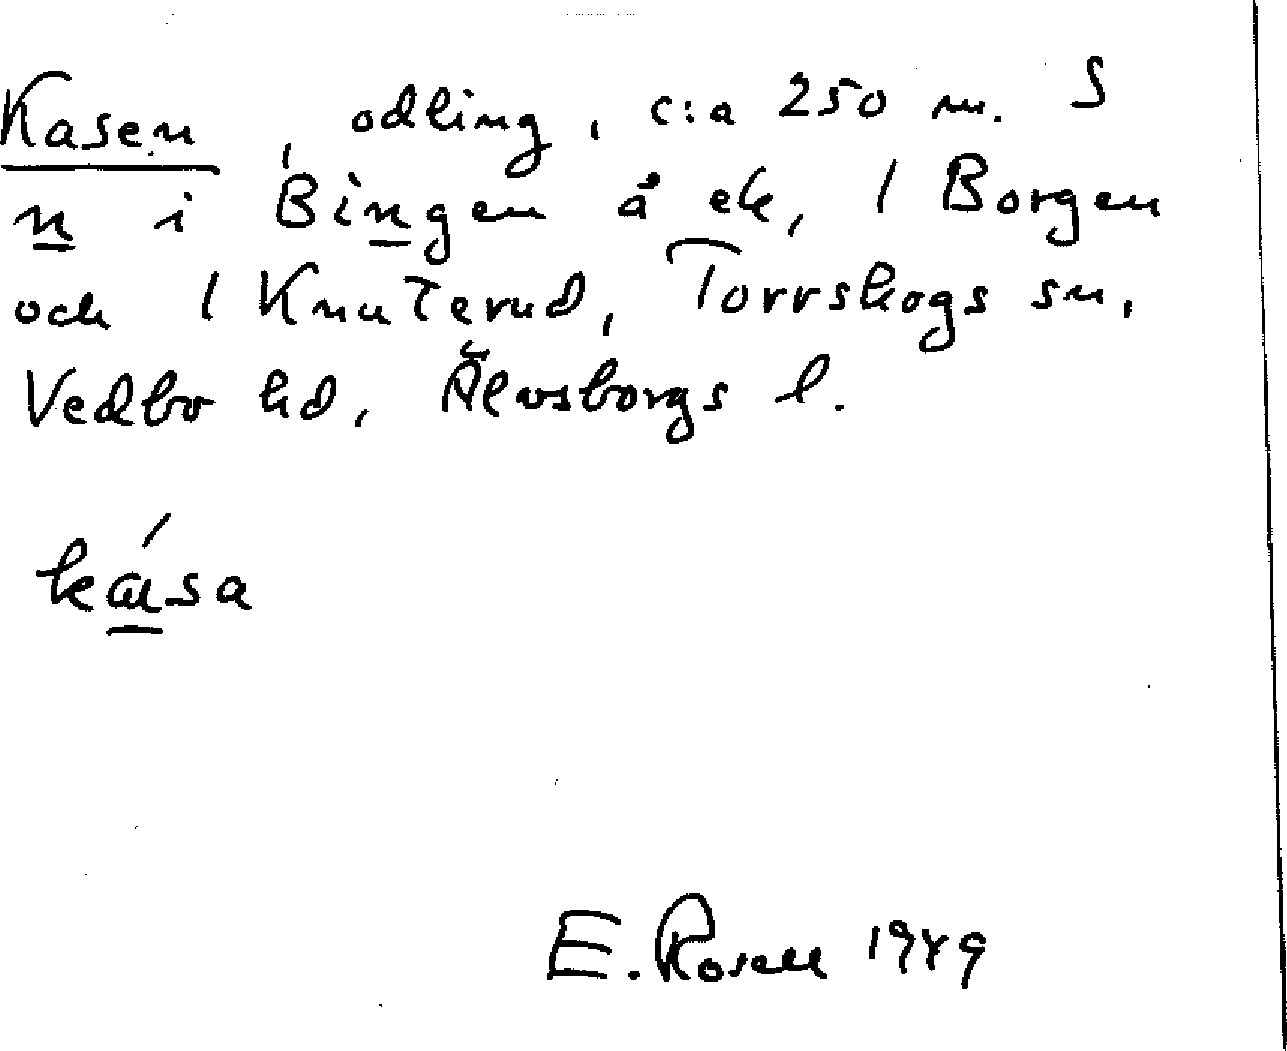 Kasen, odling, c:a 250 m. S
n i Bingen å ek, 1 Borgen
och 1 Knuterud, Torrskogs sn,
Vedbo hd, Älvsborgs l.
ká̱sa
E. Rosell 1949